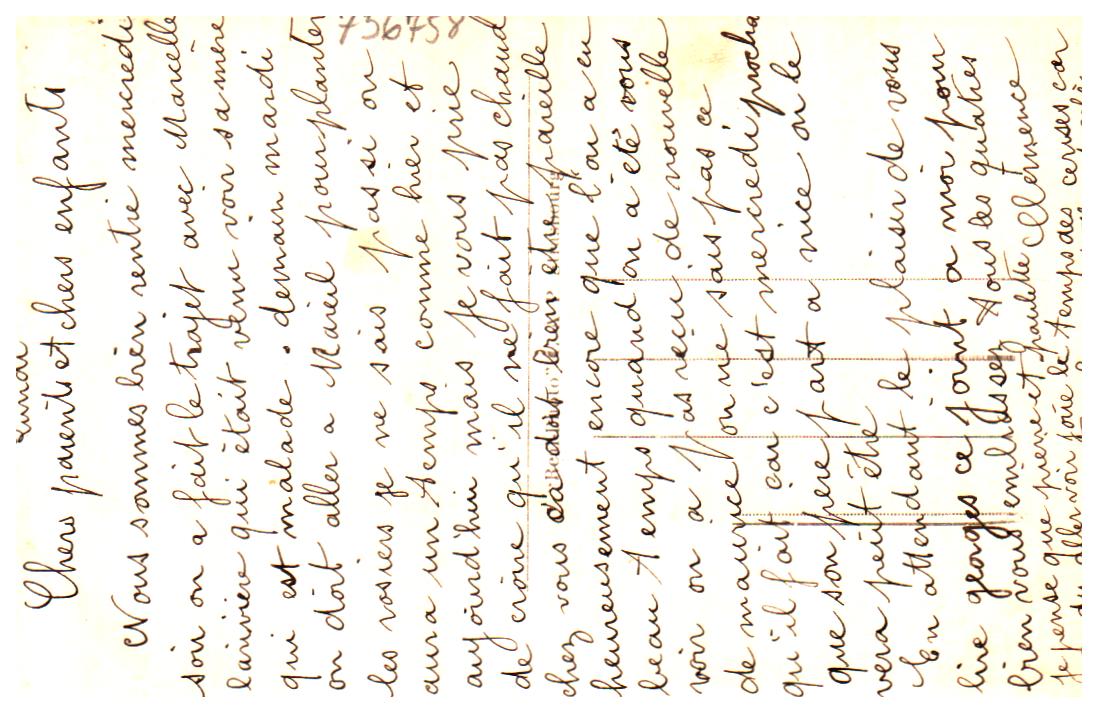 Lundi
Chers parents et chers enfants
Nous sommes bien rentré mercredi
soir on a fait le trajet avec Marcelle
lariviere qui était venu voir sa mère
qui est malade. demain mardi
on doit aller a Mareil pour planter
les rosiers je ne sais pas si on
aura un temps comme hier et
aujourd'hui mais je vous prie
de croire qu'il ne fait pas chaud
chez vous ca doit bien etre pareille
heureusement encore que l'on a eu
beau temps quand on a été vous
voir on a pas reçu de nouvelle
de maurice on ne sais pas ce
qu'il fait car c'est mercredi procha
que son pere part a nice on le
vera peut être
En attendant le plaisir de vous
lire georges ce joint a moi pour
bien vous embrassez tous les quatres
je pense que pierre et paulette Clémence
aller voir joué le temps des cerises car
736758